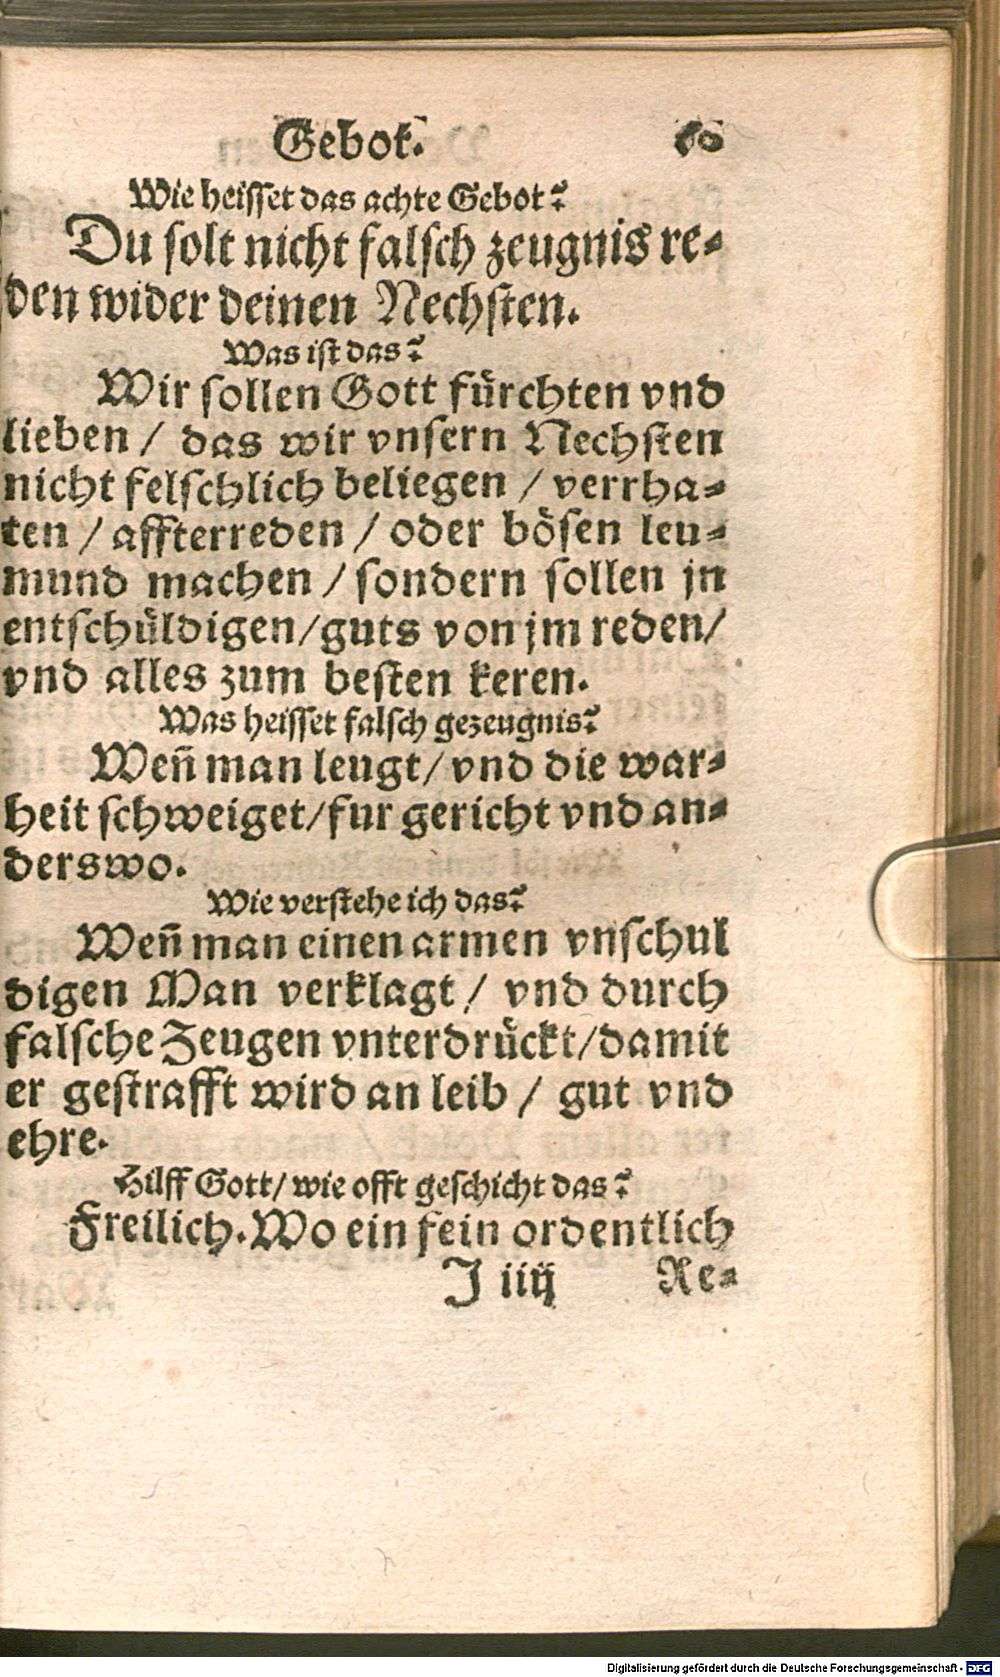 Gebot.
Wie heisset das achte Gebot?
Du solt nicht falsch zeugnis re-
den wider deinen Nechsten.
Was ist das?
Wir sollen Gott fürchten vnd
lieben / das wir vnsern Nechsten
nicht felschlich beliegen / verrha-
ten / affterreden / oder bösen leu-
mund machen / sondern sollen jn
entschüldigen/guts von jm reden/
vnd alles zum besten keren.
Was heisset falsch gezeugnis?
Weñ man leugt/vnd die war-
heit schweiget/fur gericht vnd an-
derswo.
Wie verstehe ich das?
Weñ man einen armen vnschul
digen Man verklagt / vnd durch
falsche Zeugen vnterdrückt/damit
er gestrafft wird an leib / gut vnd
ehre.
Hilff Gott/ wie offt geschicht das?
Freilich. Wo ein fein ordentlich
J iiij Re-
Digitalisierung gefördert durch die Deutsche Forschungsgemeinschaft - DFG